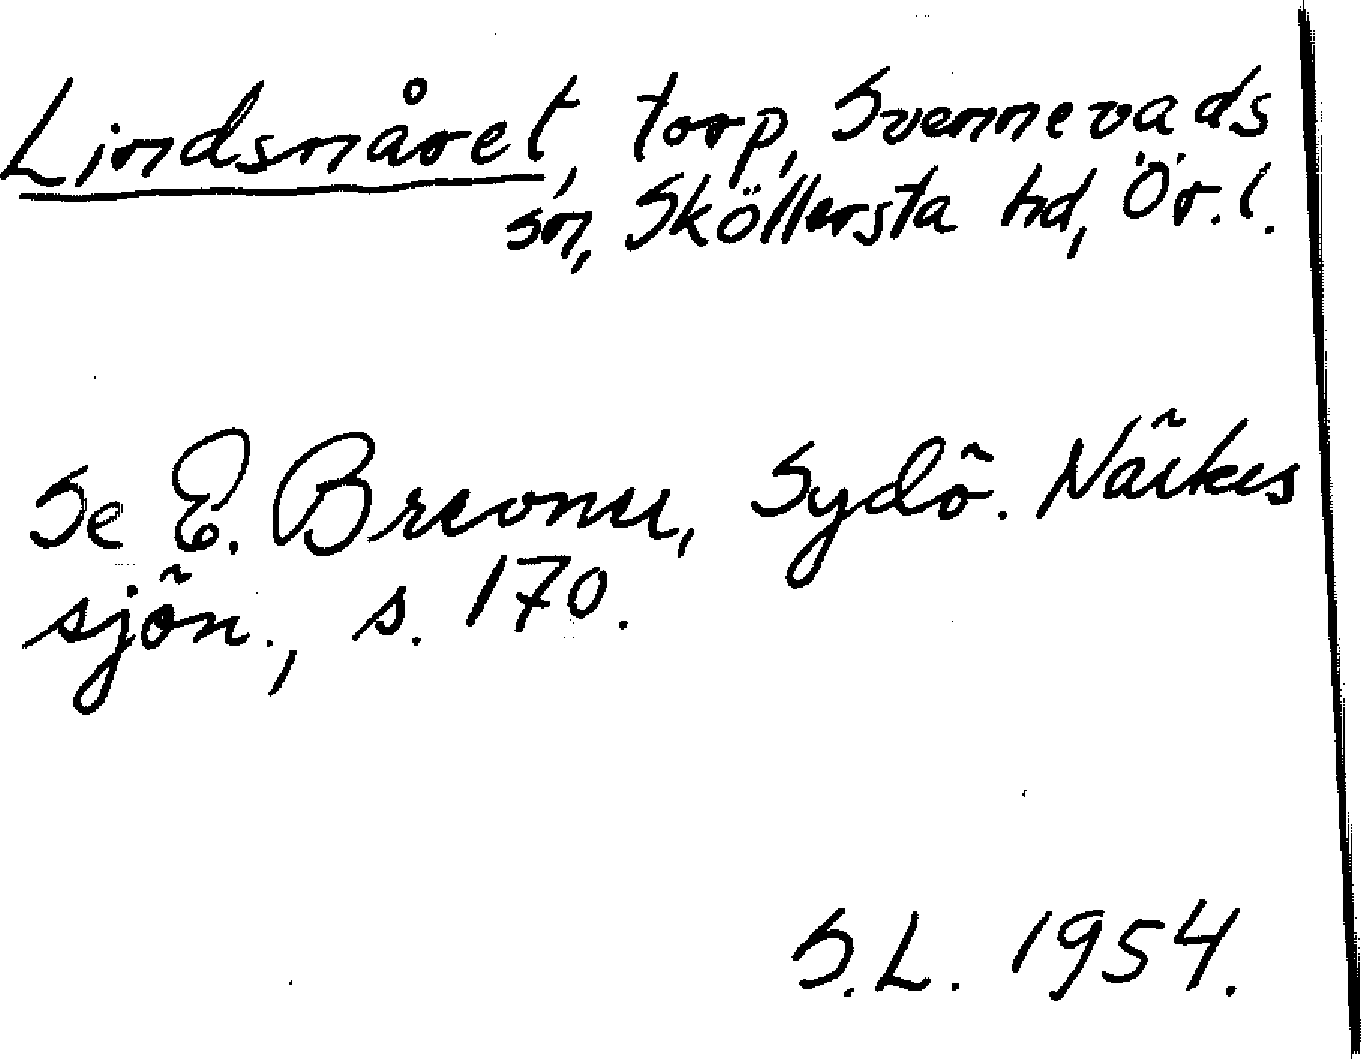 Lindsnåret, torp, Svennevads
sn, Sköllersta hd, Ör. l.
Se E. Brevner, Sydö. Närkes
sjön., s. 170.
S.L. 1954.